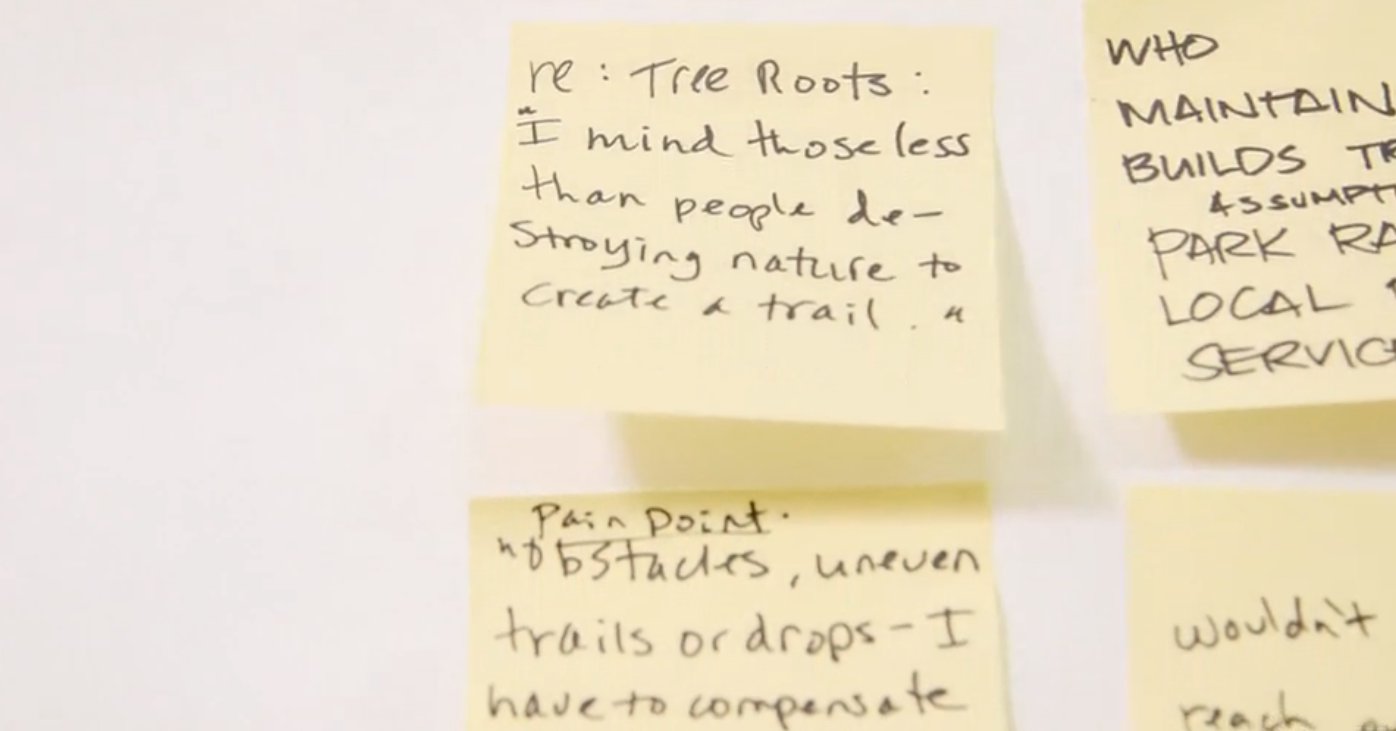 re: Tree Roots:
"I mind those less
than people de-
stroying nature to
create a trail."
WHO
MAINTAIN
BUILDS
PARK
LOCAL
Pain Point.
"obstacles, uneven
trails or drops - I
have to compensate
wouldn't
reach